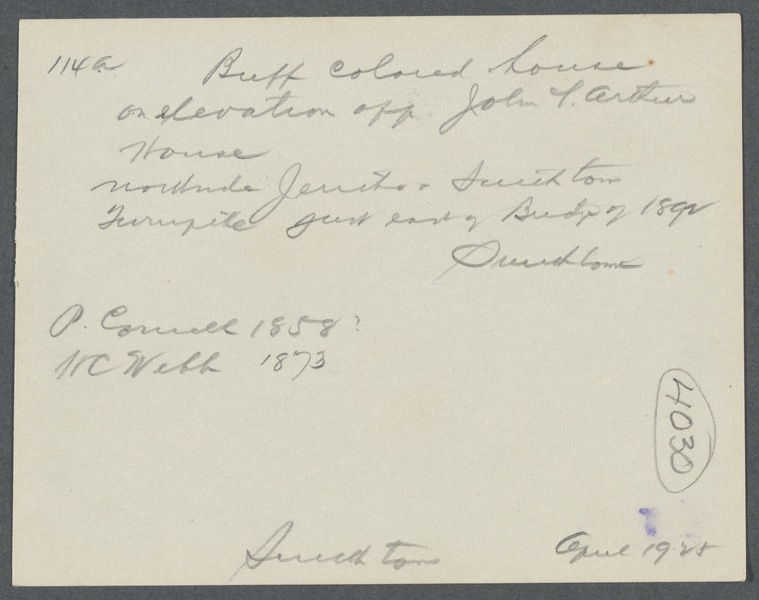 114a Buff colored house
on elevation opp. John S. Arthur
House
north side Jericho & Smithtown
Turnpike just east of Bridge of 189
Smithtown
P. Cornell 1858?
WC Webb 1873
4030
Smithtown April 1925